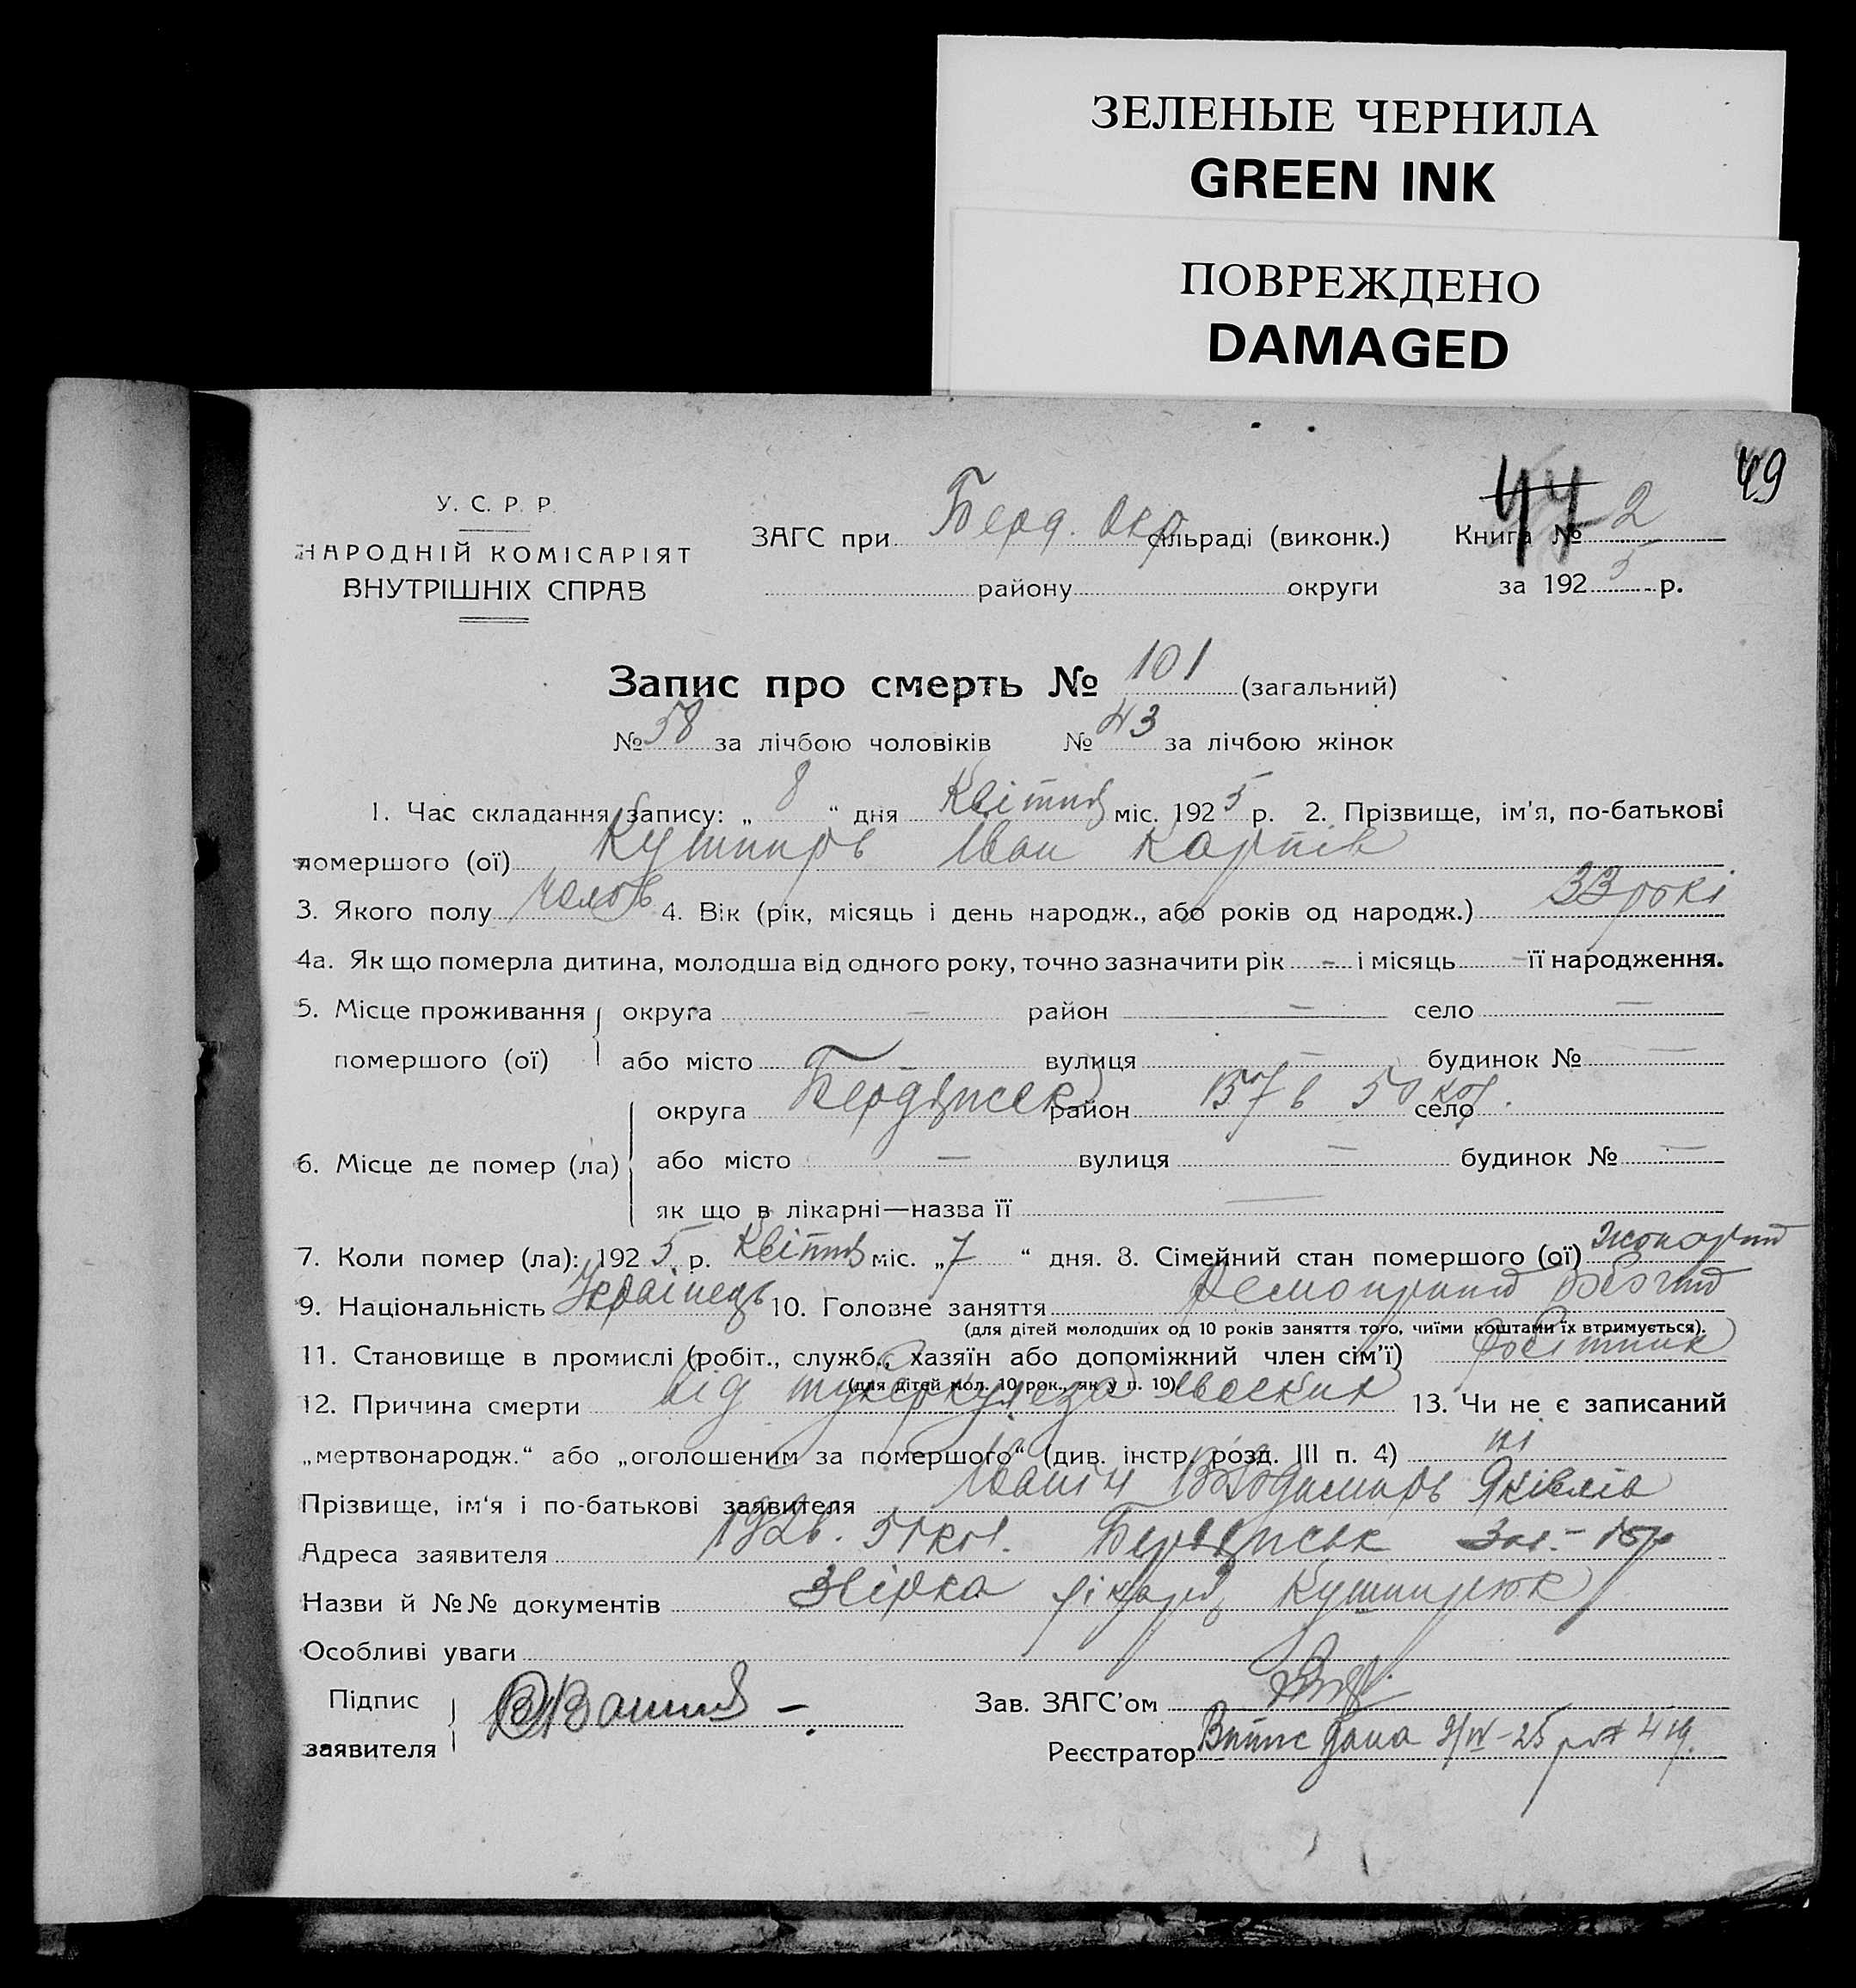 ЗЕЛЕНЫЕ ЧЕРНИЛА
GREEN INK
ПОВРЕЖДЕНО
DAMAGED
49
У. С. Р. Р.
НАРОДНІЙ КОМІСАРІЯТ
ВНУТРІШНІХ СПРАВ
ЗАГС при Берд. Окр сільраді (виконк.)
району округи
Книга № 2
за 1925 р.
Запис про смерть № 101 (загальний)
№ 58 за лічбою чоловіків № 43 за лічбою жінок
1. Час складання запису: „ 8 “ дня Квітня міс. 1925 р. 2. Прізвище, ім'я, по-батькові
помершого (ої) Кушнирь Іван Карпів
3. Якого полу чолов 4. Вік (рік, місяць і день народж., або років од народж.) 33 рокі
4а. Як що померла дитина, молодша від одного року, точно зазначити рік - і місяць - її народження.
5. Місце проживання помершого (ої) округа — район — село —
або місто — вулиця — будинок № —
6. Місце де помер (ла) округа Бердическ район 157 в 50 кол. село
або місто — вулиця — будинок № —
як що в лікарні—назва її —
7. Коли помер (ла): 1925 р. Квітня міс. „ 7 “ дня. 8. Сімейний стан помершого (ої) жонатий
9. Національність Українець 10. Головне заняття
(для дітей молодших од 10 років заняття того, чиїми коштами їх втримується).
11. Становище в промислі (робіт., служб., хазяїн або допоміжний член сім'ї) робітник
(для дітей мол. 10 рок., як у п. 10)
12. Причина смерти від туберкулеза 13. Чи не є записаний
„мертвонародж.“ або „оголошеним за помершого“ (див. інстр. розд. III п. 4) ні
Прізвище, ім'я і по-батькові заявителя Володимирь Яківлів
Адреса заявителя Бердичеськ
Назви й №№ документів лікаря
Особливі уваги
Підпис
заявителя
Зав. ЗАГС'ом
Реєстратор Витяг дана 9/IV-25